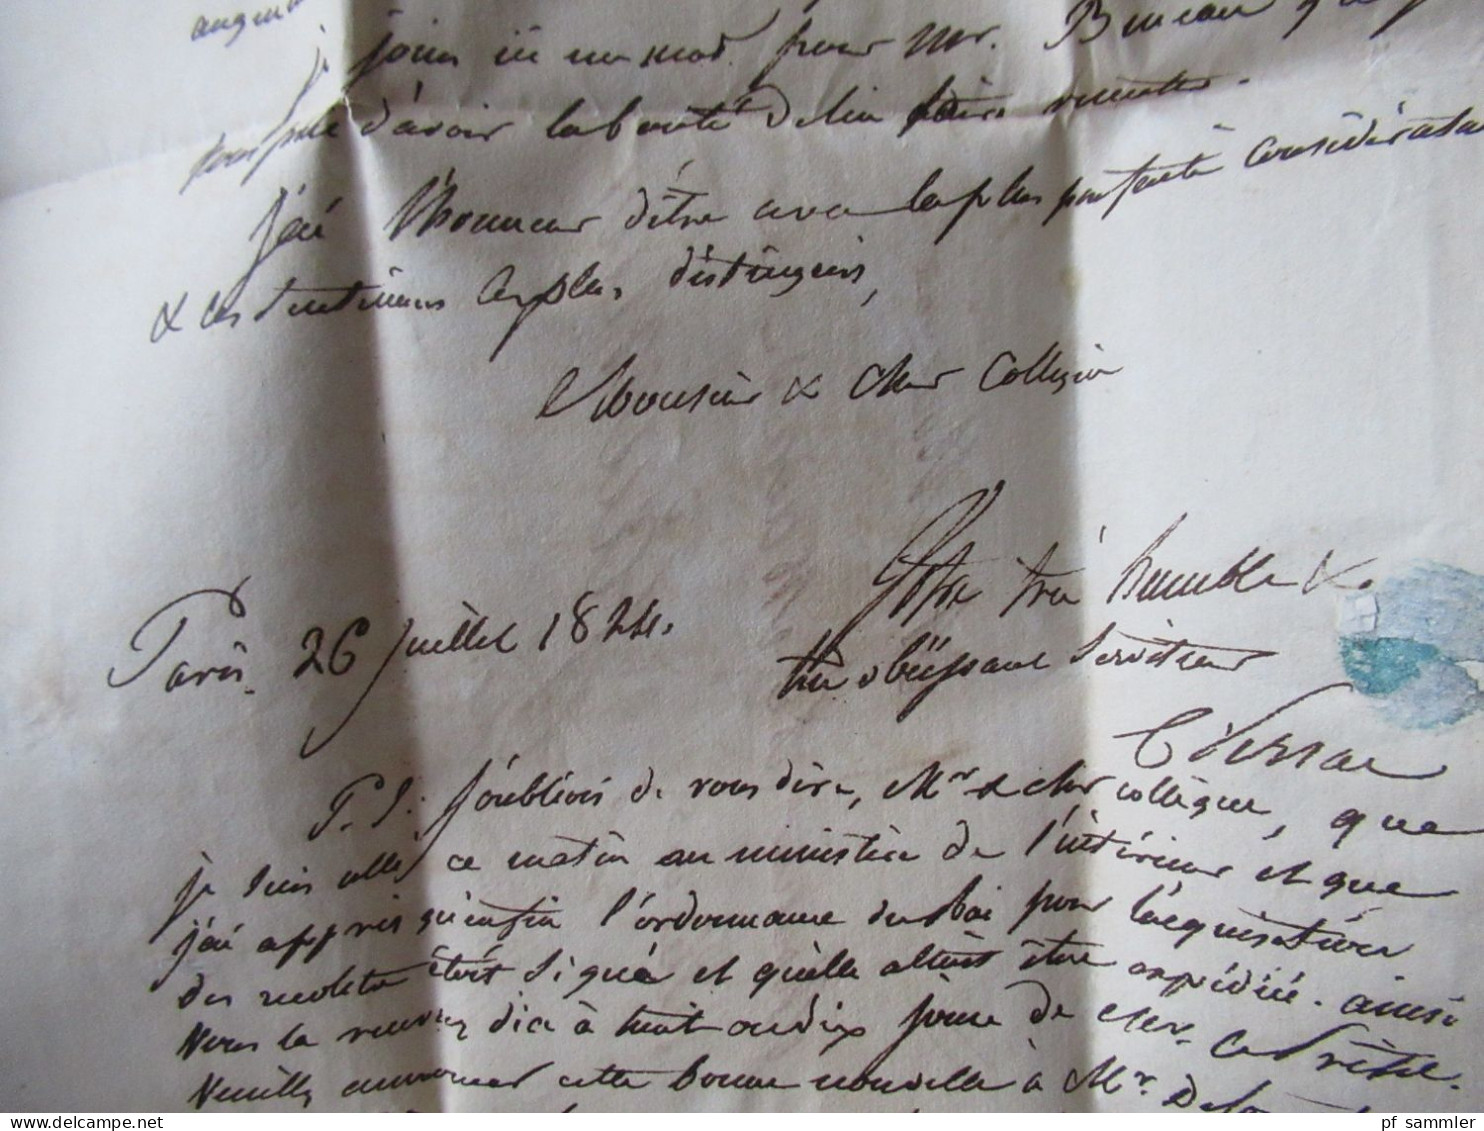 je joins ici un mot pour Mr.
vous prie d'avoir la bonté de lui faire remettre.
J'ai l'honneur d'être avec la plus parfaite considération
& les sentimens les plus distingués,
Monsieur & cher Collègue
Votre très humble &
très obéissant Serviteur
Paris 26 Juillet 1844.
P.S. J'oubliois de vous dire, Mr & cher collègue, que
je suis allé ce matin au ministère de l'intérieur et que
j'ai appris qu'enfin l'ordonnance du Roi pour l'acquisition
des récolets étoit signée et qu'elle alloit être expédiée. ainsi
vous la recevrez d'ici à huit ou dix jours de
Veuillez annoncer cette bonne nouvelle à Mr.
pf sammler